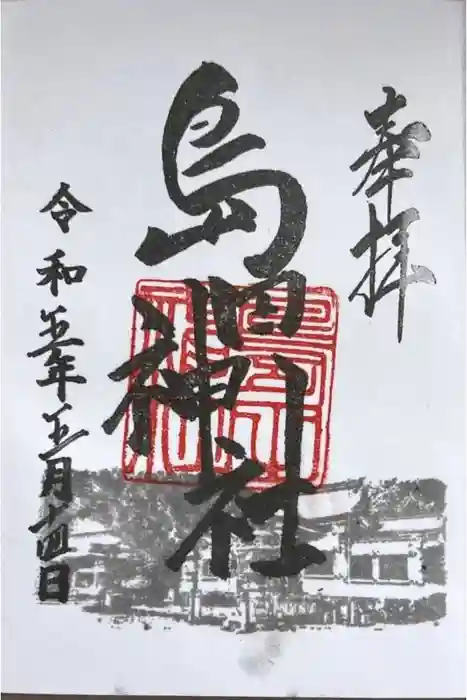 奉拝
島田神社
令和五年五月十四日